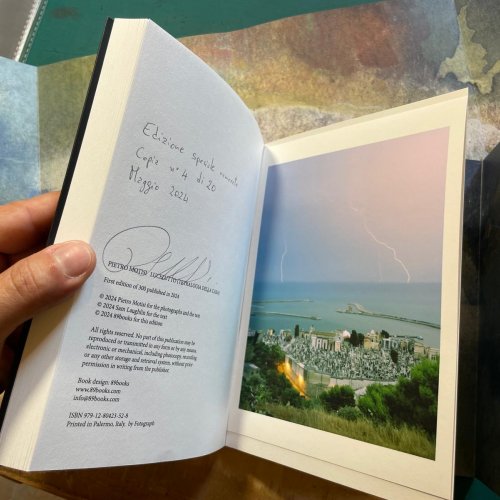 Edizione speciale numerata
Copia n° 4 di 20
Maggio 2024
PIETRO MOTISI
First edition of 300 published in 2024
© 2024 Pietro Motisi for the photographs and the text
© 2024 Sam Laughlin for the text
© 2024 89books for this edition
All rights reserved. No part of this publication may be
reproduced or transmitted in any form or by any means,
electronic or mechanical, including photocopy, recording
or any other storage and retrieval system, without prior
permission in writing from the publisher.
Book design: 89books
www.89books.com
info@89books.com
ISBN 979-12-80423-52-8
Printed in Palermo, Italy. by Fotograph